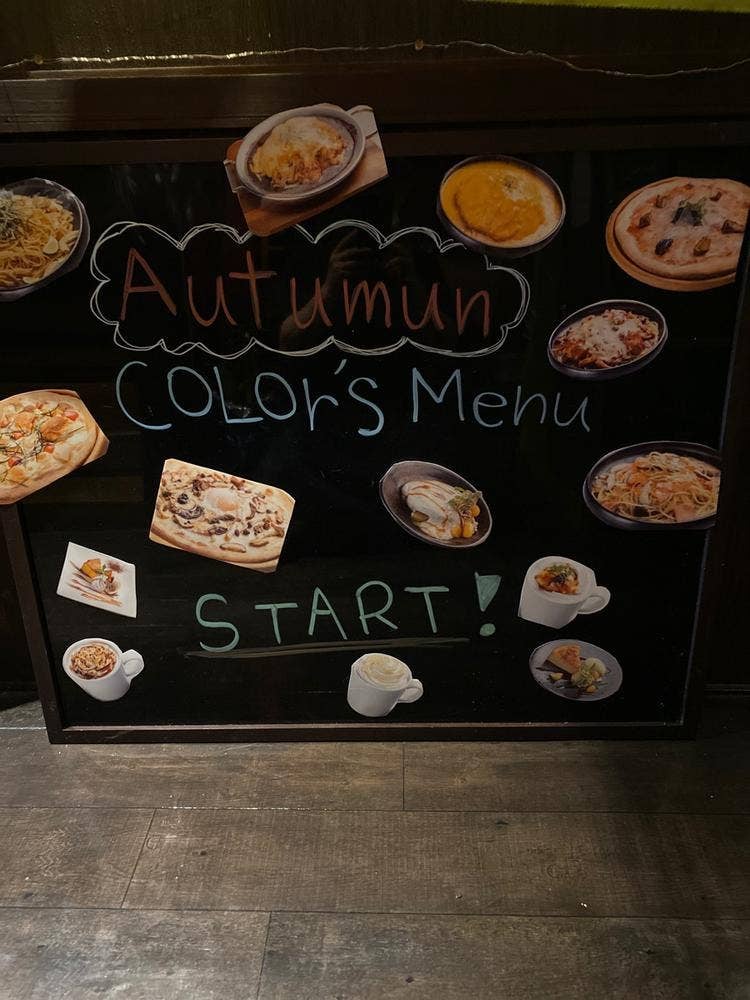 Autumun
COLOr's Menu
START!